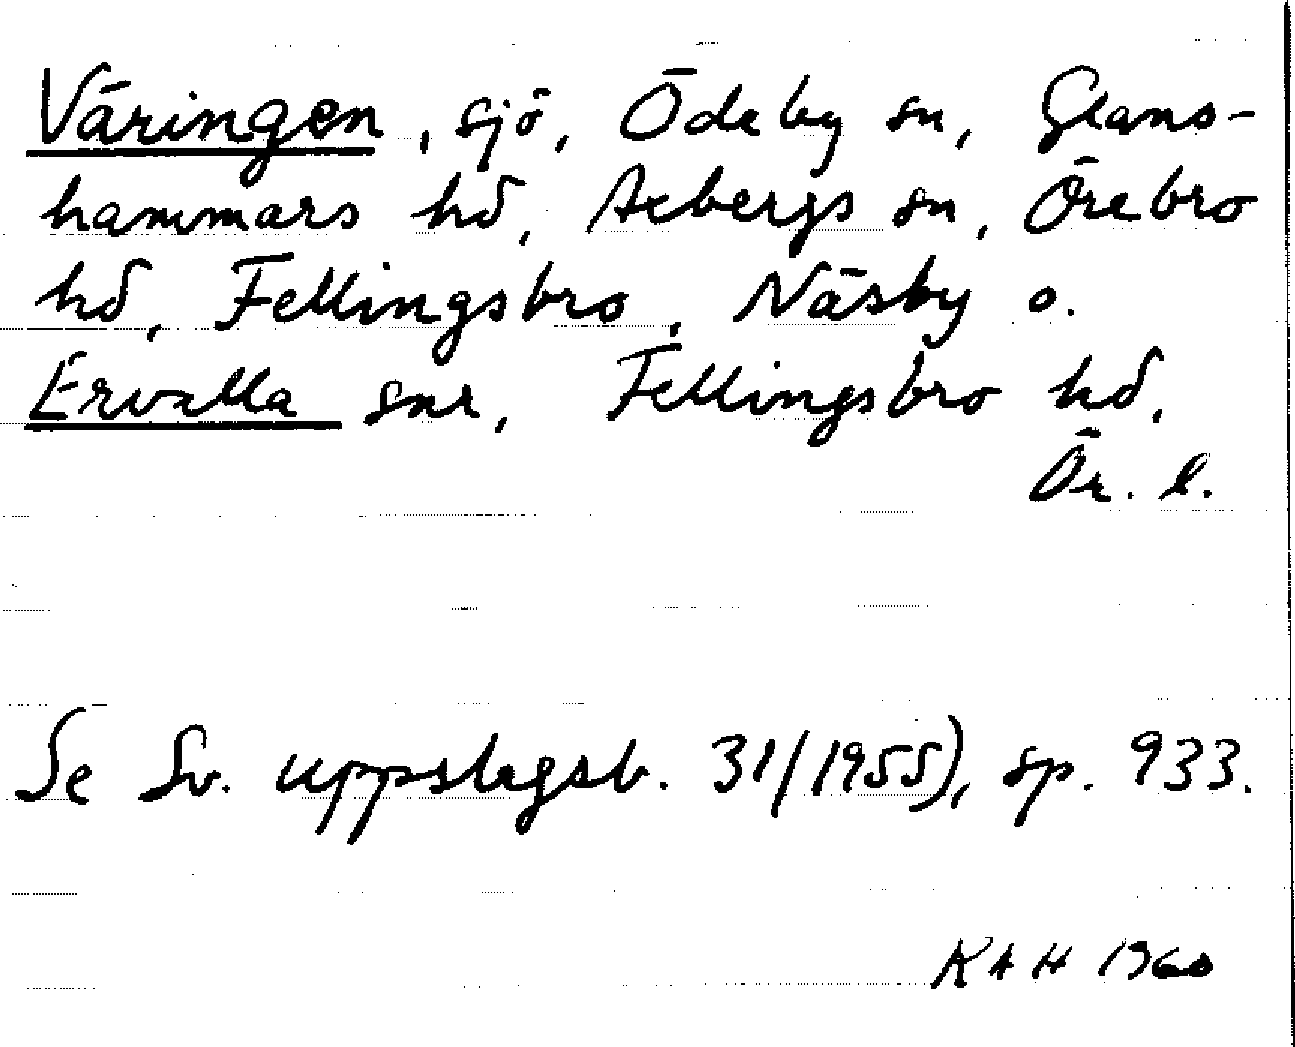 Väringen, sjö, Ödeby sn, Glans-
hammars hd, Axbergs sn, Örebro
hd, Fellingsbro, Näsby o.
Ervalla snr, Fellingsbro hd,
Ör. l.
Se Sv. uppslagsb. 31/1955), sp. 933.
KAH 1960